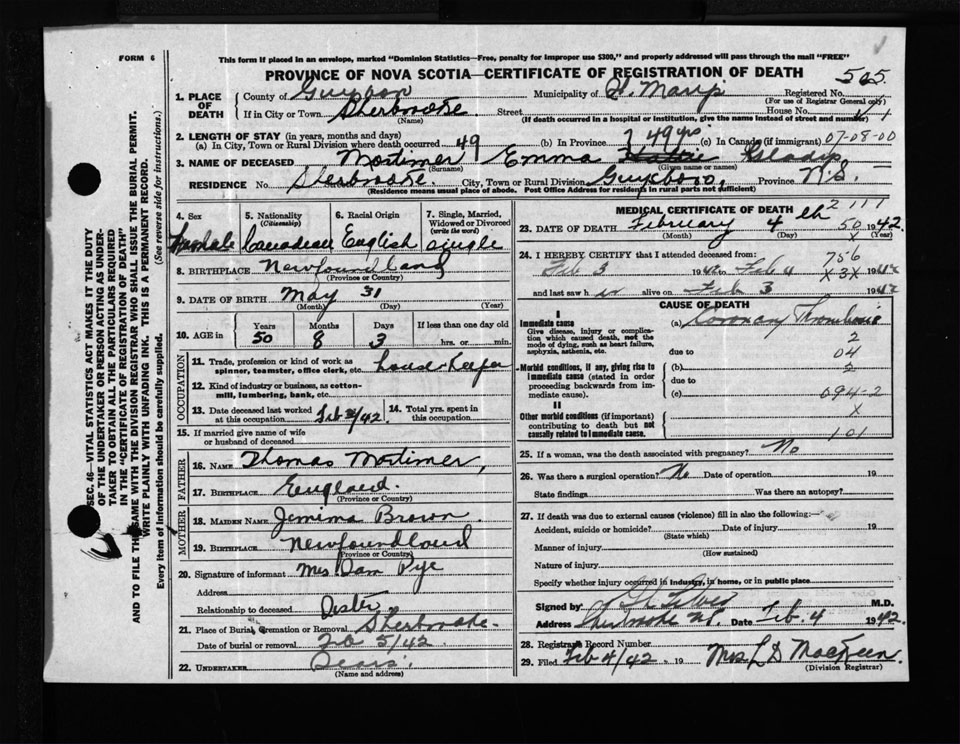 FORM 6
This form if placed in an envelope, marked "Dominion Statistics—Free, penalty for improper use $300," and properly addressed will pass through the mail "FREE"
PROVINCE OF NOVA SCOTIA—CERTIFICATE OF REGISTRATION OF DEATH 505
1. PLACE OF DEATH
County of Municipality of St. Marys Registered No.
(For use of Registrar General only)
If in City or Town Sherbrooke Street House No.
(Name) (If death occurred in a hospital or institution, give the name instead of street and number)
2. LENGTH OF STAY (in years, months and days)
(a) In City, Town or Rural Division where death occurred 49 (b) In Province 49 yrs (c) In Canada (if immigrant) 07-08-00
3. NAME OF DECEASED Mortimer Emma Gladys
(Surname) (Given name or names)
RESIDENCE No. Sherbrooke. City, Town or Rural Division Guysboro, Province N.S.
(Residence means usual place of abode. Post Office Address for residents in rural parts not sufficient)
SEC. 46—VITAL STATISTICS ACT MAKES IT THE DUTY
OF THE UNDERTAKER OR PERSON ACTING AS UNDER-
TAKER TO OBTAIN ALL THE PARTICULARS REQUIRED
IN THE "CERTIFICATE OF REGISTRATION OF DEATH"
AND TO FILE THE SAME WITH THE DIVISION REGISTRAR WHO SHALL ISSUE THE BURIAL PERMIT.
WRITE PLAINLY WITH UNFADING INK. THIS IS A PERMANENT RECORD.
Every item of information should be carefully supplied. (See reverse side for instructions.)
4. Sex Female
5. Nationality (Citizenship) Canadian
6. Racial Origin English
7. Single, Married, Widowed or Divorced (write the word) single
8. BIRTHPLACE Newfoundland
(Province or Country)
9. DATE OF BIRTH May 31
(Month) (Day) (Year)
10. AGE in Years 50 Months 8 Days 3 If less than one day old hrs. or min.
OCCUPATION
11. Trade, profession or kind of work as spinner, teamster, office clerk, etc. House-Keeper
12. Kind of industry or business, as cotton-mill, lumbering, bank, etc.
13. Date deceased last worked at this occupation Feb /42
14. Total yrs. spent in this occupation
15. If married give name of wife or husband of deceased
FATHER
16. NAME Thomas Mortimer,
17. BIRTHPLACE England.
(Province or Country)
MOTHER
18. MAIDEN NAME Jemima Brown.
19. BIRTHPLACE Newfoundland
(Province or Country)
20. Signature of informant Mrs Dam Pye
Address
Relationship to deceased Sister
21. Place of Burial, Cremation or Removal Sherbrooke.
Date of burial or removal Feb 5/42
22. UNDERTAKER Sears.
(Name and address)
MEDICAL CERTIFICATE OF DEATH 2 111
23. DATE OF DEATH February 4th 50 1942
(Month) (Day) (Year)
X
24. I HEREBY CERTIFY that I attended deceased from: 756
Feb 3 1942 to Feb 4 X3X 1942
and last saw her alive on Feb 3 1942
CAUSE OF DEATH
I
Immediate cause
Give disease, injury or complication which caused death, not the mode of dying, such as heart failure, asphyxia, asthenia, etc.
(a) Coronary Thrombosis
2
due to 04
Morbid conditions, if any, giving rise to immediate cause (stated in order proceeding backwards from immediate cause).
(b)
due to
(c) 094-2
X
II
Other morbid conditions (if important) contributing to death but not causally related to immediate cause.
101
25. If a woman, was the death associated with pregnancy? No
26. Was there a surgical operation? No Date of operation 19
State findings Was there an autopsy?
27. If death was due to external causes (violence) fill in also the following:—
Accident, suicide or homicide? Date of injury 19
(State which)
Manner of injury
(How sustained)
Nature of injury
Specify whether injury occurred in industry, in home, or in public place
Signed by M.D.
Address Sherbrooke N.S. Date Feb. 4 1942
28. Registrars Record Number
29. Filed Feb 4/42 19 Mrs L D MacKeen.
(Division Registrar)